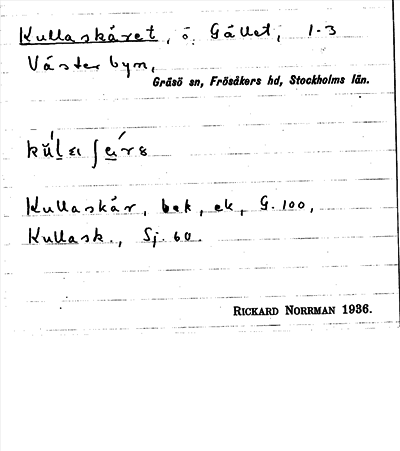 Kullaskäret, ö. Gället, 1-3
Väster byn,
Gräsö sn, Frösåkers hd, Stockholms län.
Kullaskär, bek, ek, G. 100,
Kullask., Sj. 60.
RICKARD NORRMAN 1936.